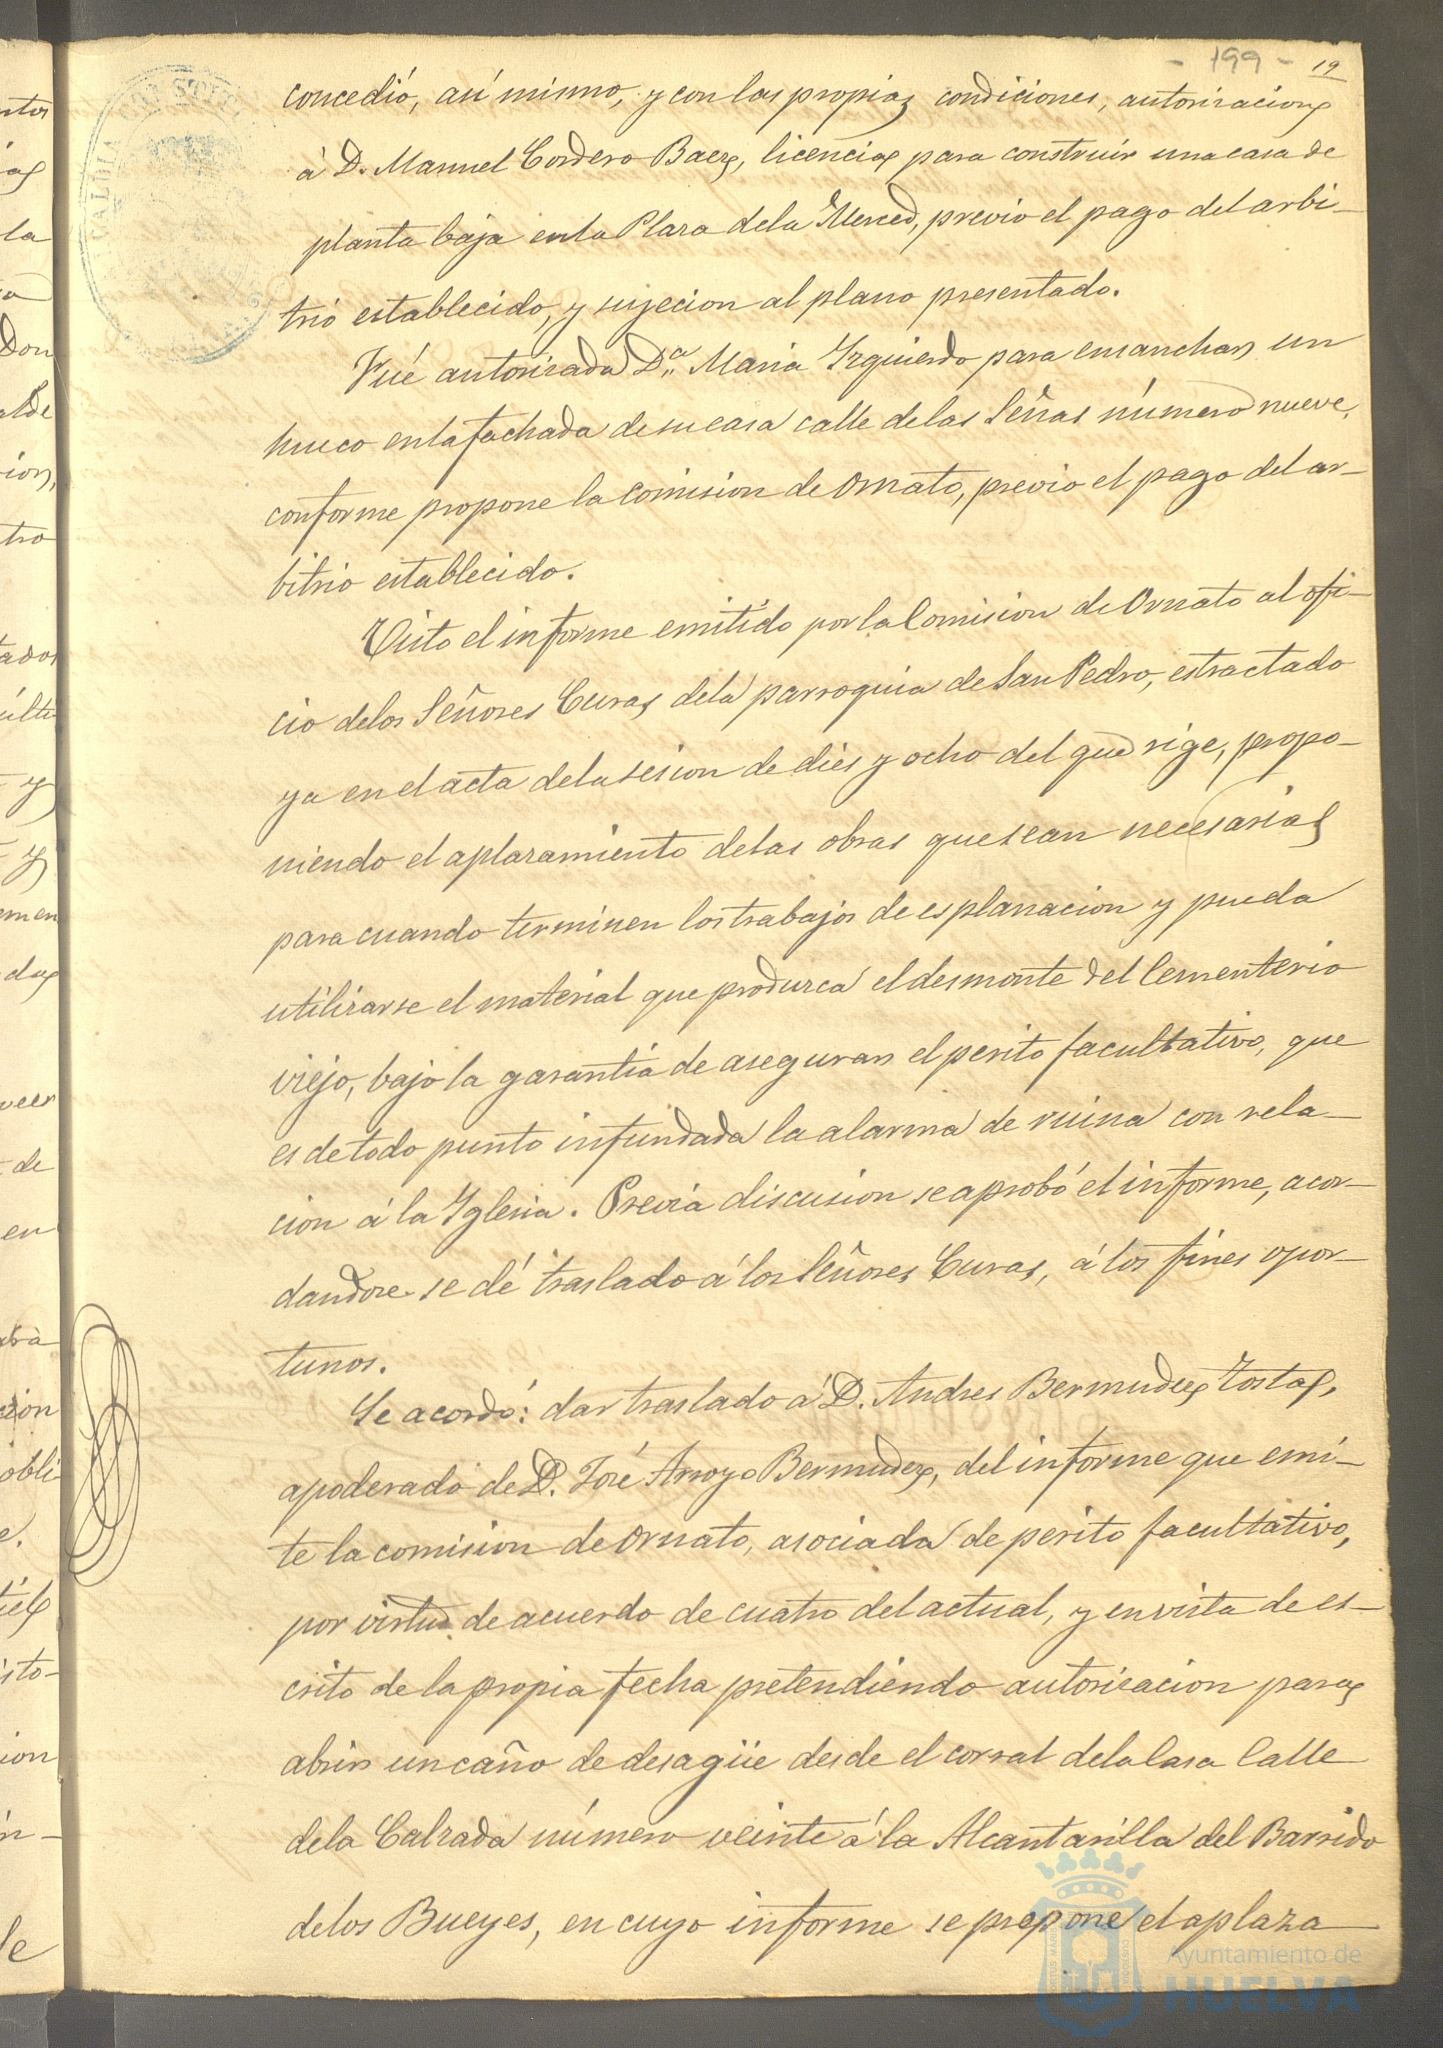 - 199 - 19
concedió, así mismo, y con las propias condiciones, autorizacion
á D. Manuel Cordero Baez, licencia para construir una casa de
planta baja en la Plaza de la Merced, previo el pago del arbi-
trio establecido, y sujecion al plano presentado.
Fué autorizada D.ª Maria Izquierdo para ensanchar un
hueco en la fachada de su casa calle de las Señas número nueve,
conforme propone la comision de Ornato, previo el pago del ar-
bitrio establecido.
Visto el informe emitido por la Comision de Ornato al ofi-
cio de los Señores Curas de la parroquia de San Pedro, estractado
ya en el acta de la sesion de dies y ocho del que rige, propo-
niendo el aplazamiento de las obras que sean necesarias
para cuando terminen los trabajos de esplanacion y pueda
utilizarse el material que produzca el desmonte del Cementerio
viejo, bajo la garantía de asegurar el perito facultativo, que
es de todo punto infundada la alarma de ruina con rela-
cion á la Iglesia. Previa discusion se aprobó el informe, acor-
dandose se dé traslado á los Señores Curas, á los fines opor-
tunos.
Se acordó: dar traslado á D. Andres Bermudez Tosta,
apoderado de D. José Arroyo Bermudez, del informe que emi-
te la comision de Ornato, asociada de perito facultativo,
por virtud de acuerdo de cuatro del actual, y en vista de es-
crito de la propia fecha pretendiendo autorizacion para
abrir un caño de desagüe desde el corral de la Casa Calle
de la Calzada número veinte á la Alcantarilla del Barrido
de los Bueyes, en cuyo informe se propone el aplaza
Ayuntamiento de
HUELVA